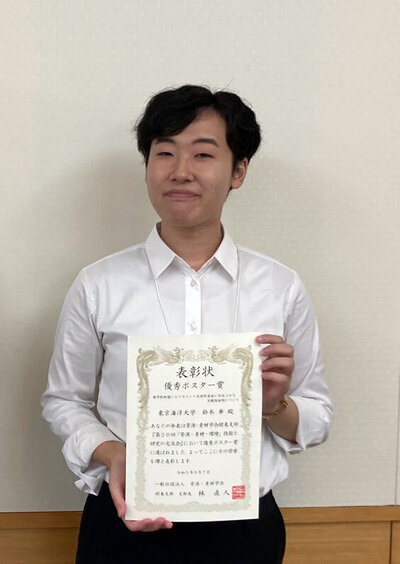 表彰状
優秀ポスター賞
東京海洋大学 鈴木 華 殿
あなたの発表は資源・素材学会関東支部
『第20回「資源・素材・環境」技術と
研究の交流会』において優秀ポスター賞
に選ばれました よってここにその栄誉
を讃え表彰します
一般社団法人 資源・素材学会
関東支部 支部長 林 直人